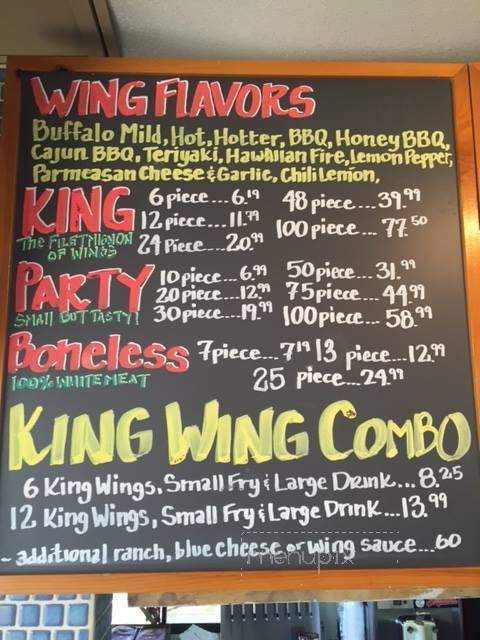 WING FLAVORS
Buffalo Mild, Hot, Hotter, BBQ, Honey BBQ,
Cajun BBQ, Teriyaki, Hawhiian Fire, Lemon Pepper,
Parmeasan Cheese & Garlic, Chili Lemon,
KING
THE FILET MIGNON
OF WINGS
6 piece... 6.19 48 piece... 39.99
12 piece... 11.79 100 piece... 77.50
24 Piece... 20.99
PARTY
SMALL BUT TASTY!
10 piece... 6.99 50 piece... 31.99
20 piece... 12.99 75 piece... 44.99
30 piece... 19.99 100 piece... 58.99
Boneless
100% WHITE MEAT
7 piece... 7.19 13 piece... 12.99
25 piece... 24.99
KING WING COMBO
6 King Wings, Small Fry & Large Drink... 8.25
12 King Wings, Small Fry & Large Drink... 13.99
- additional ranch, blue cheese or wing sauce... 60
menupix